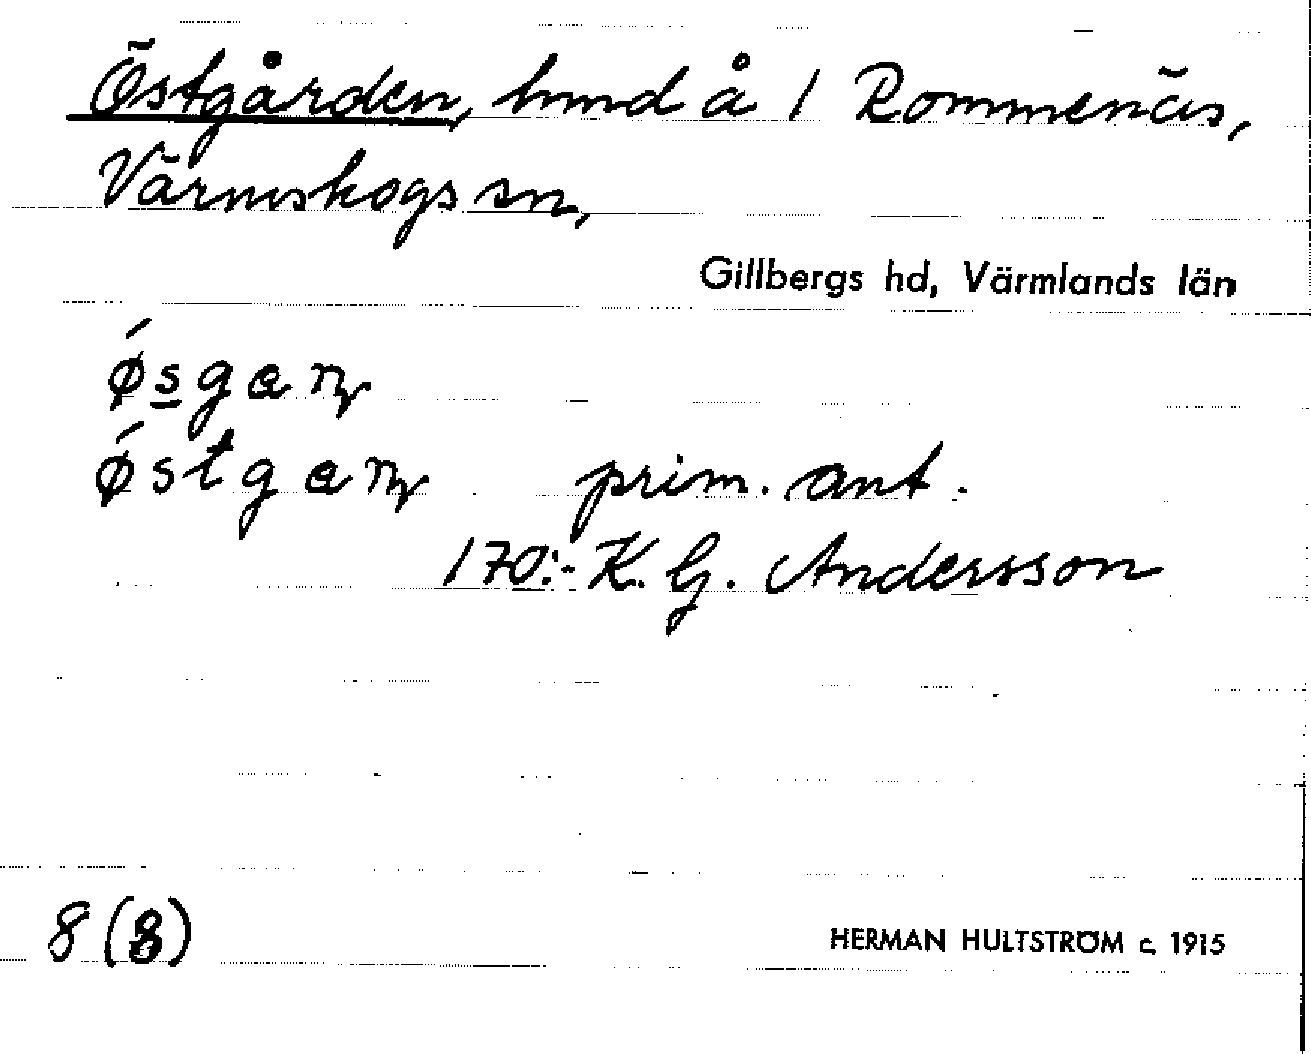 Östgården, hmd å 1 Rommenäs,
Värmskogs sn,
Gillbergs hd, Värmlands län
ǿsgaɳ
ǿstgaɳ prim. ant.
170:- K. G. Andersson
8 (8)
HERMAN HULTSTRÖM c. 1915